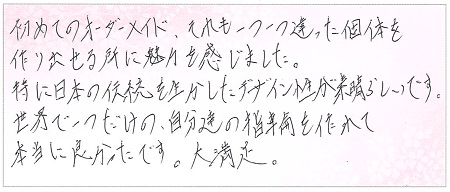 初めてのオーダーメイド、それも一つ一つ違った個体を
作り出せる所に魅力を感じました。
特に日本の伝統を生かしたデザイン性が素晴らしいです。
世界で一つだけの、自分達の指輪を作れて
本当に良かったです。大満足。